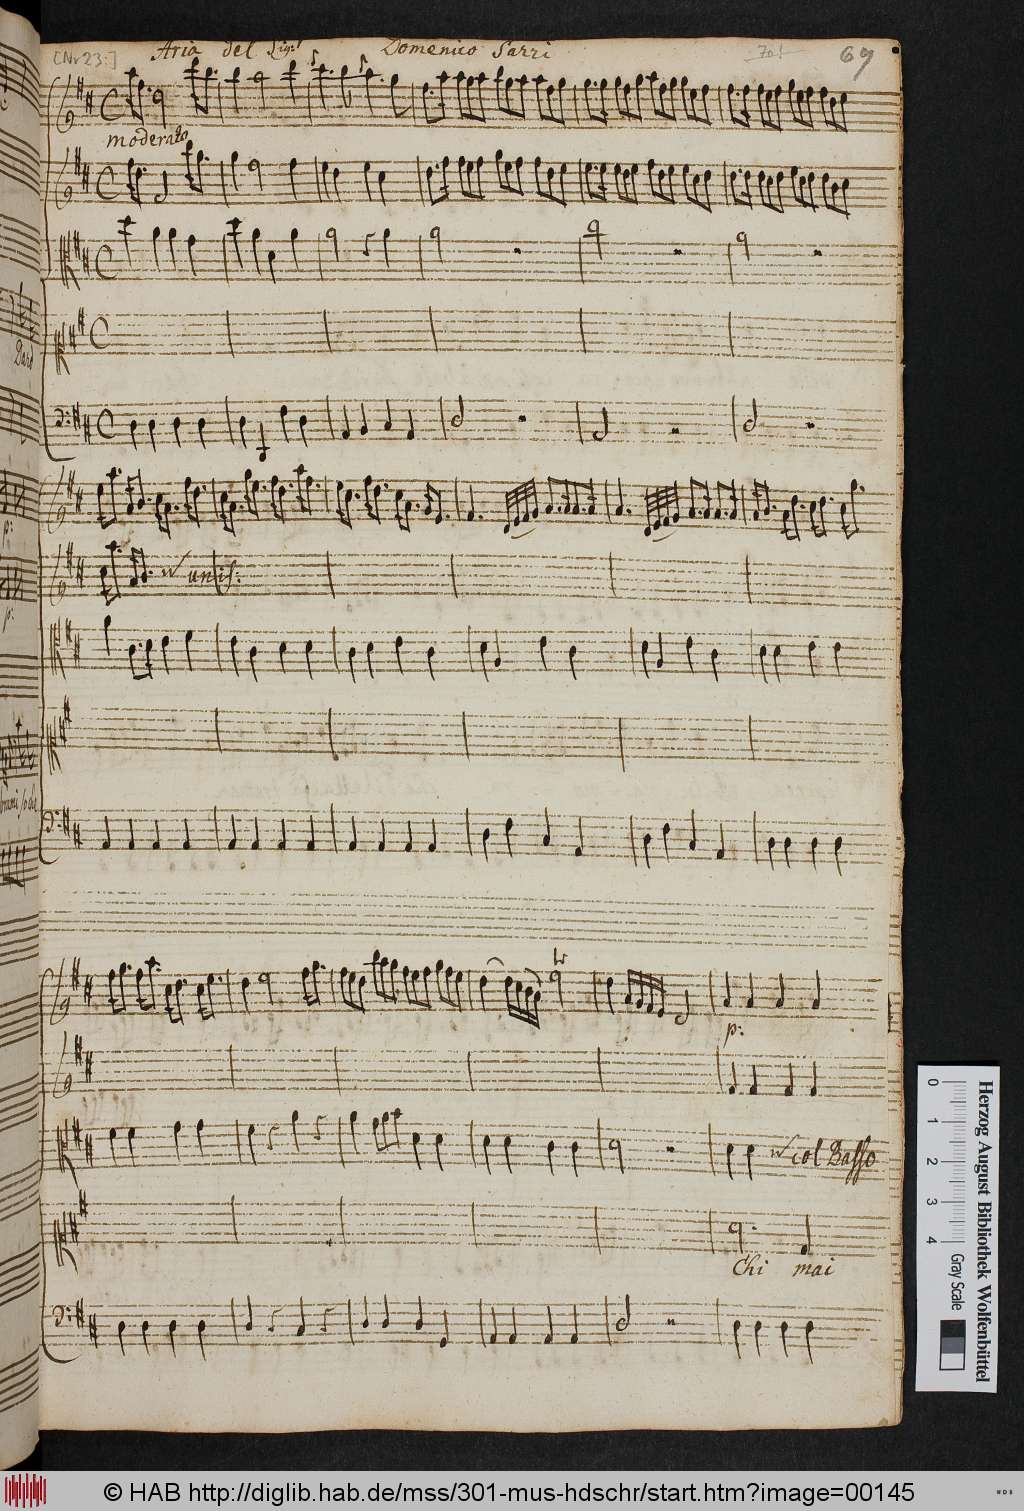 [Nr 23.] Aria del Sig.r Domenico Sarri 69
moderato
w unis:
p:
w col Basso
Chi mai
Herzog August Bibliothek Wolfenbüttel
0 1 2 3 4 Gray Scale
© HAB http://diglib.hab.de/mss/301-mus-hdschr/start.htm?image=00145
WDB